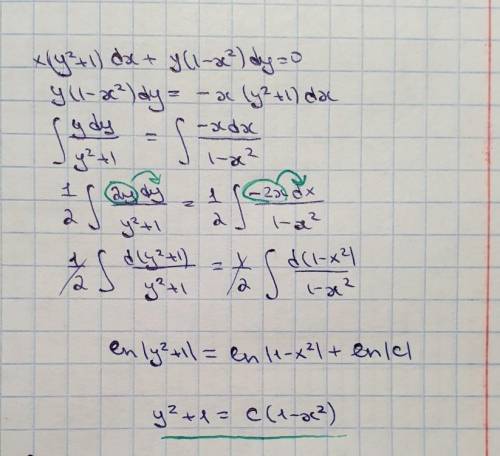 x(y²+1)dx + y(1-x²)dy=0
y(1-x²)dy = -x(y²+1)dx
∫ ydy/y²+1 = ∫ -xdx/1-x²
1/2 ∫ 2ydy/y²+1 = 1/2 ∫ -2xdx/1-x²
1/2 ∫ d(y²+1)/y²+1 = 1/2 ∫ d(1-x²)/1-x²
ln|y²+1| = ln|1-x²| + ln|c|
y²+1 = c(1-x²)